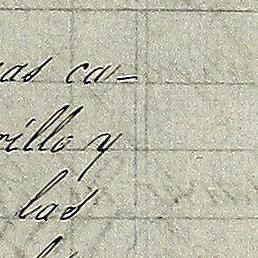 as ca-
rillo y
las